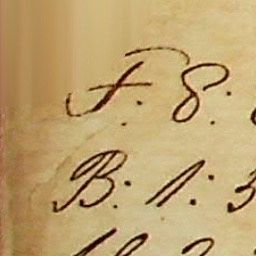 F: 8:
B: 1: 3